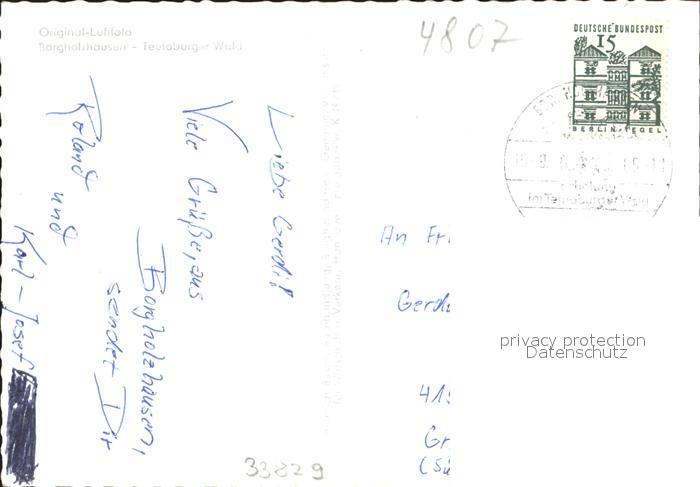 Original-Luftfoto
Borgholzhausen - Teutoburger Wald
4807
DEUTSCHE BUNDESPOST
15
BERLIN-TEGEL
im Teutoburger Wald
Liebe Gerdi!
Viele Grüße, aus
Borgholzhausen,
sendet Dir
Roland und
Karl-Josef
An Frl
Gerd
415
Gr
(Sü
privacy protection
Datenschutz
33829